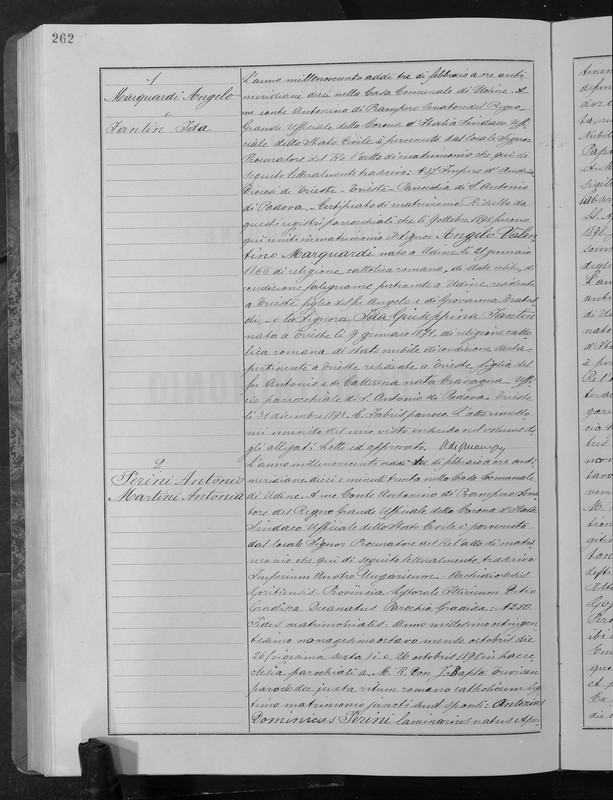 262
1
Marquardi Angelo
e
Fantin Ida
L'anno millenovecento addì tre di febbraio a ore anti
meridiane dieci nella Casa Comunale di Udine. A
me conte Antonino di Prampero Senatore del Regno
Grande Ufficiale della Corona d'Italia Sindaco Uffi
ciale dello Stato Civile è pervenuto dal locale Signor
Procuratore del Re l'atto di matrimonio che qui di
seguito letteralmente trascrivo: Impero d'Austria
Diocesi di Trieste - Trieste - Parrochia di S. Antonio
di Padova. Certificato di matrimonio Risulta da
questi registri parrocchiali che li 9 ottobre 1898 furono
qui uniti in matrimonio il Signor Angelo Valen
tino Marquardi nato a Udine li 21 gennaio
1866 di religione cattolica romana, di stato celibe, di
condizione falegname pertinente a Udine residente
a Trieste figlio del fu Angelo e di Giovanna
e la Signora Ida Giuseppina Fantin
nata a Trieste li 9 gennaio di religione catto
lica romana di stato nubile di condizione sarta
pertinente a Trieste residente a Trieste figlia del
fu Antonio e di Catterina nata Cravagna. Uffi
cio parrocchiale di S. Antonio di Padova. Trieste
li 31 dicembre 1898. C. Fabris parroco.
mi munito del mio visto inserto nel volume de
gli allegati. Letto ed approvato.
2
Perini Antonio
Martini Antonia
L'anno millenovecento addì tre di febbraio a ore anti
meridiane dieci e minuti trenta nella Casa Comunale
di Udine. A me Conte Antonino di Prampero Sena
tore del Regno Grande Ufficiale della Corona d'Italia
Sindaco Ufficiale dello Stato Civile è pervenuto
dal locale Signor Procuratore del Re l'atto di matri
monio che qui di seguito letteralmente trascrivo:
Imperium Austro Ungaricum - Archidiocesis
Goritiensis Provincia Litoralis Illiricum
Gradisca Decanatus Parochia Gradisca: N 250
Fides matrimonialis: Anno millesimo octingen
tesimo nonagesimo octavo mense octobris die
26 vigesima sexta i. e. 26 octobris 1898 in hac ec
clesia parochiali a M. R. Don
parocho juxta ritum romano catholicum legi
timo matrimonio juncti sunt sponsi: Antonius
Dominicus Perini natus